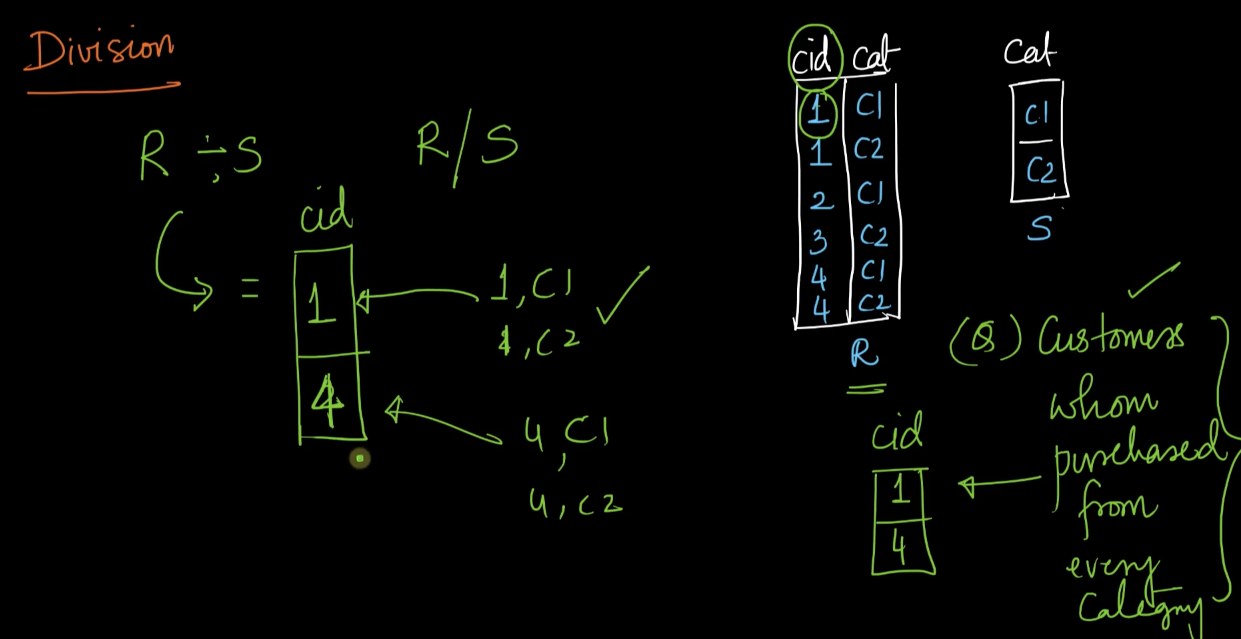 Division
R ÷ S
R/S
cid
= 1
4
1, C1
1, C2
4, C1
4, C2
cid cat
1 C1
1 C2
2 C1
3 C2
4 C1
4 C2
R
Cat
C1
C2
S
(Q) Customers
whom
purchased
from
every
Category
cid
1
4